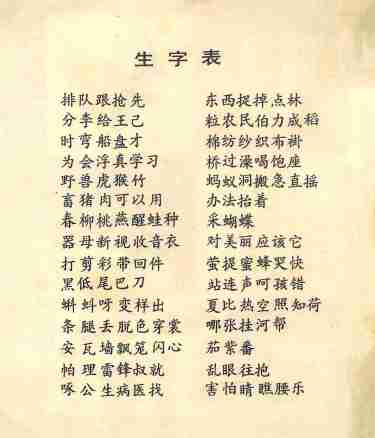 生字表
排队跟抢先
分李给王己
时弯船盘才
为会浮真学习
野兽虎猴竹
畜猪肉可以用
春柳桃燕醒蛙种
器母新视收音衣
打剪彩带回件
黑低尾巴刀
蝌蚪呀变样出
条腿丢脱色穿裳
安瓦墙飘笼闪心
帕理雷锋叔就
啄公生病医找
东西捉掉点林
粒农民伯力成稻
棉纺纱织布褂
桥过澡喝饱座
蚂蚁洞搬急直摇
办法抬着
采蝴蝶
对美丽应该它
萤提蜜蜂哭快
站连声呵孩错
夏比热空照知荷
哪张挂河帮
茄紫番
乱眼往抱
害怕睛瞧腰乐